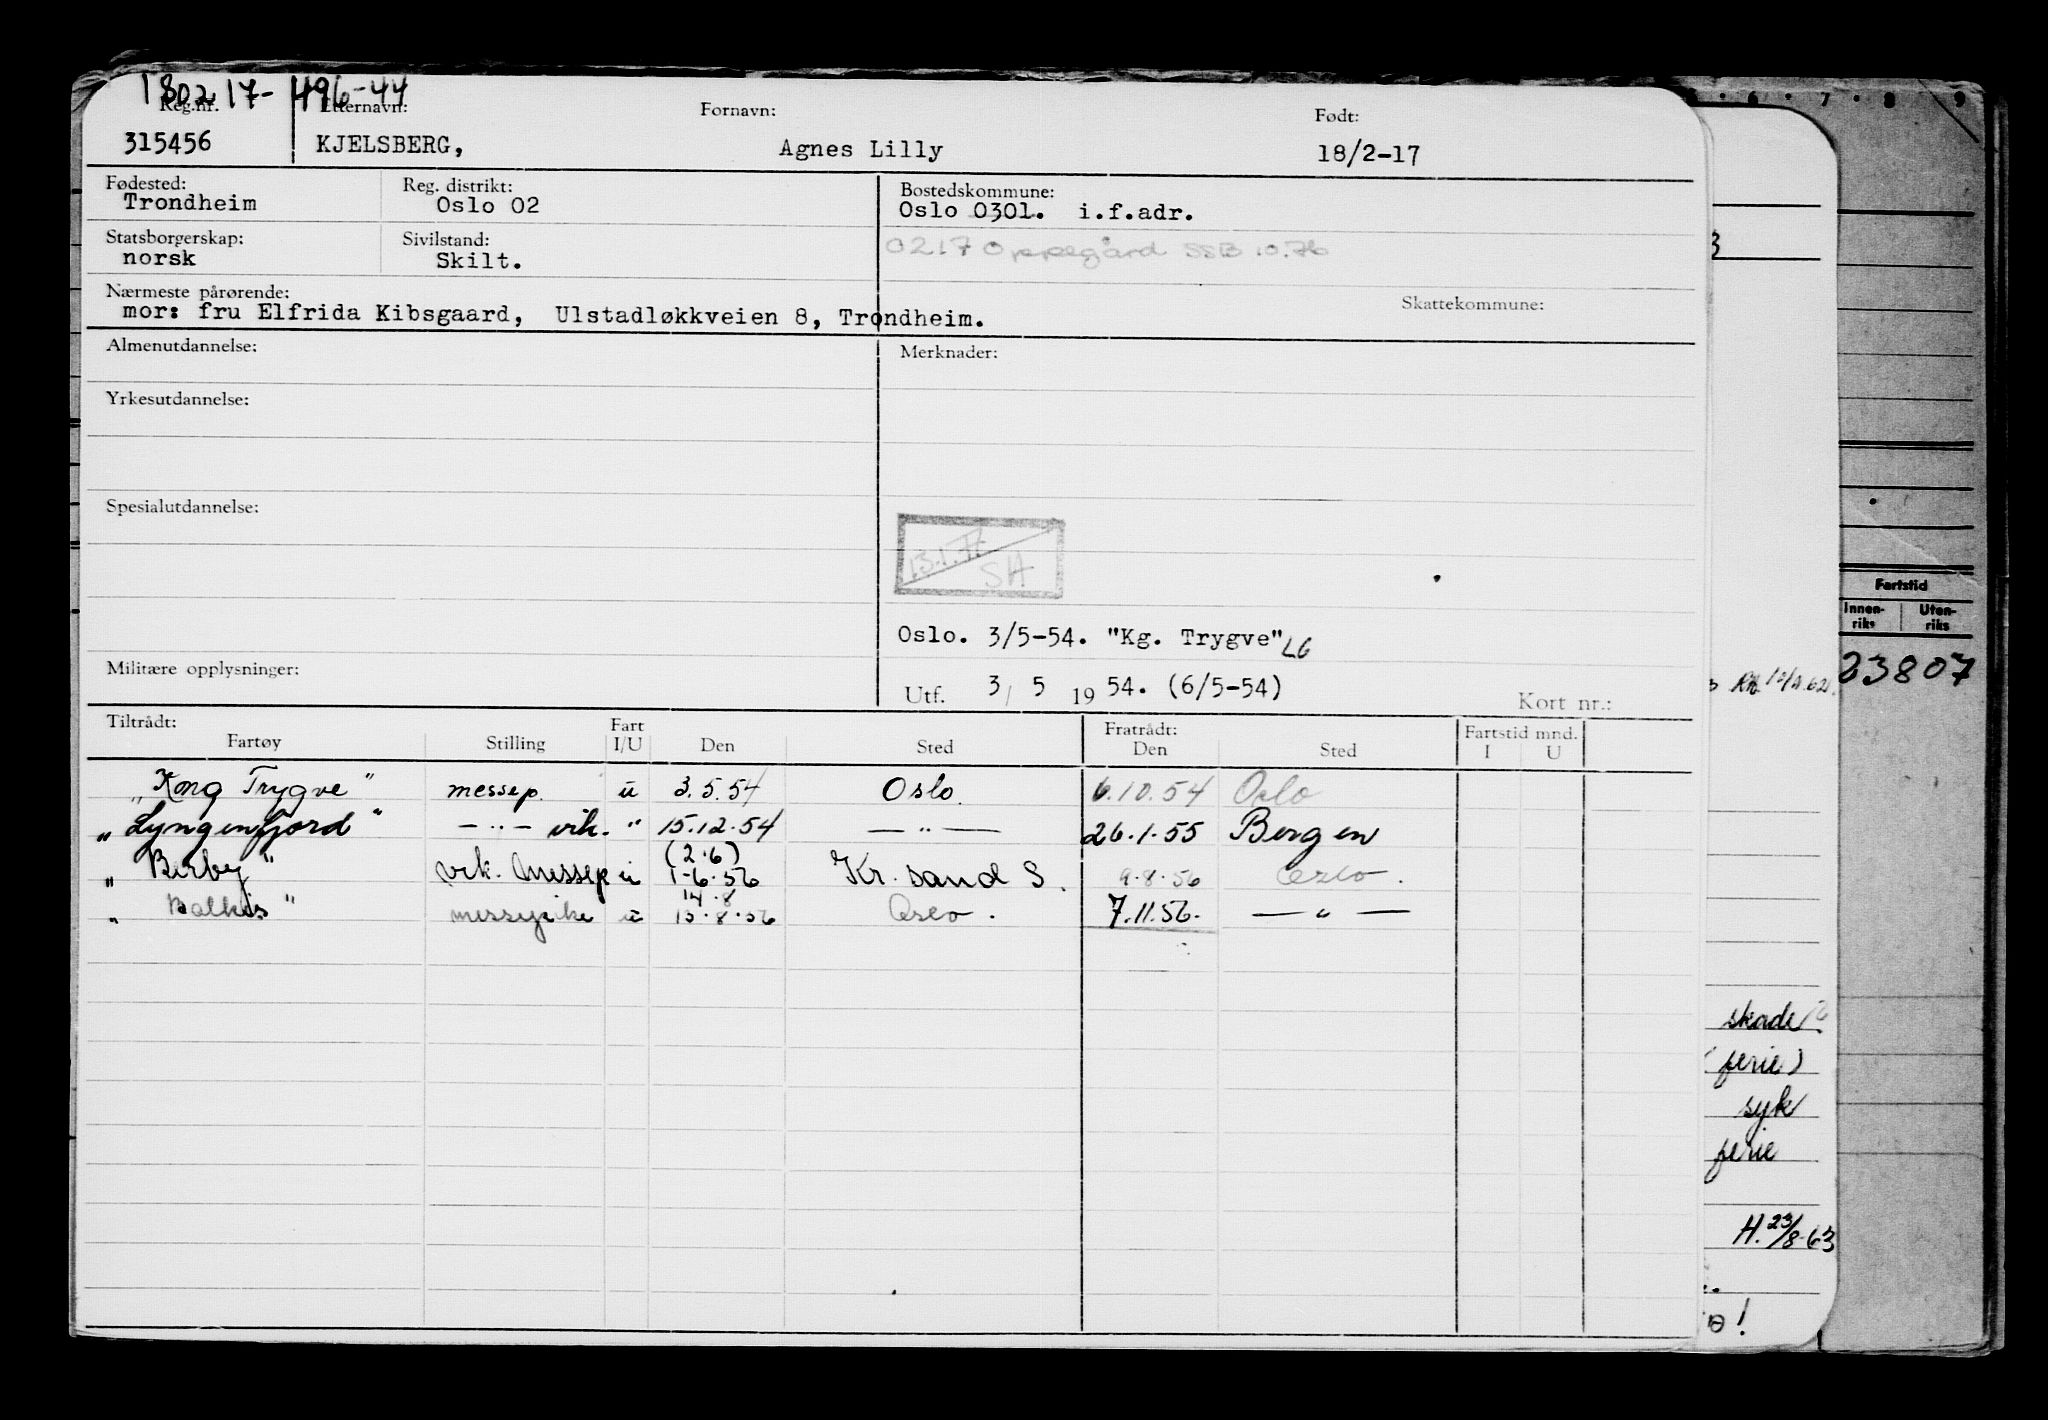 180217-49644
Reg.nr. Etternavn: Fornavn: Født:
315456 KJELSBERG, Agnes Lilly 18/2-17
Fødested: Reg. distrikt: Bostedskommune:
Trondheim Oslo 02 Oslo 0301. i.f.adr.
Statsborgerskap: Sivilstand: 0217 Oppegård SSB 10.76
norsk Skilt.
Nærmeste pårørende: Skattekommune:
mor: fru Elfrida Kibsgaard, Ulstadløkkveien 8, Trondheim.
Almenutdannelse: Merknader:
Yrkesutdannelse:
Spesialutdannelse:
13.1.77
SH
Oslo. 3/5-54. "Kg. Trygve" LG
Militære opplysninger:
Utf. 3/ 5 1954. (6/5-54) Kort nr.:
Tiltrådt: Fart Fratrådt: Fartstid mnd.
Fartøy Stilling I/U Den Sted Den Sted I U
"Kong Trygve" messep. u 3.5.54 Oslo. 6.10.54 Oslo
"Lyngenfjord" -"- vik. " 15.12.54 -"- 26.1.55 Bergen
(2.6)
"Birby" vik. messep u 1.6.56 Kr.sand S. 9.8.56 Oslo.
14.8
"Balkis" messepike u 15.8.56 Oslo. 7.11.56. -"-
6 7 8 9
Fartstid
Innen-riks Uten-riks
23807
skade
(ferie)
syk
ferie
H. 23/8-63